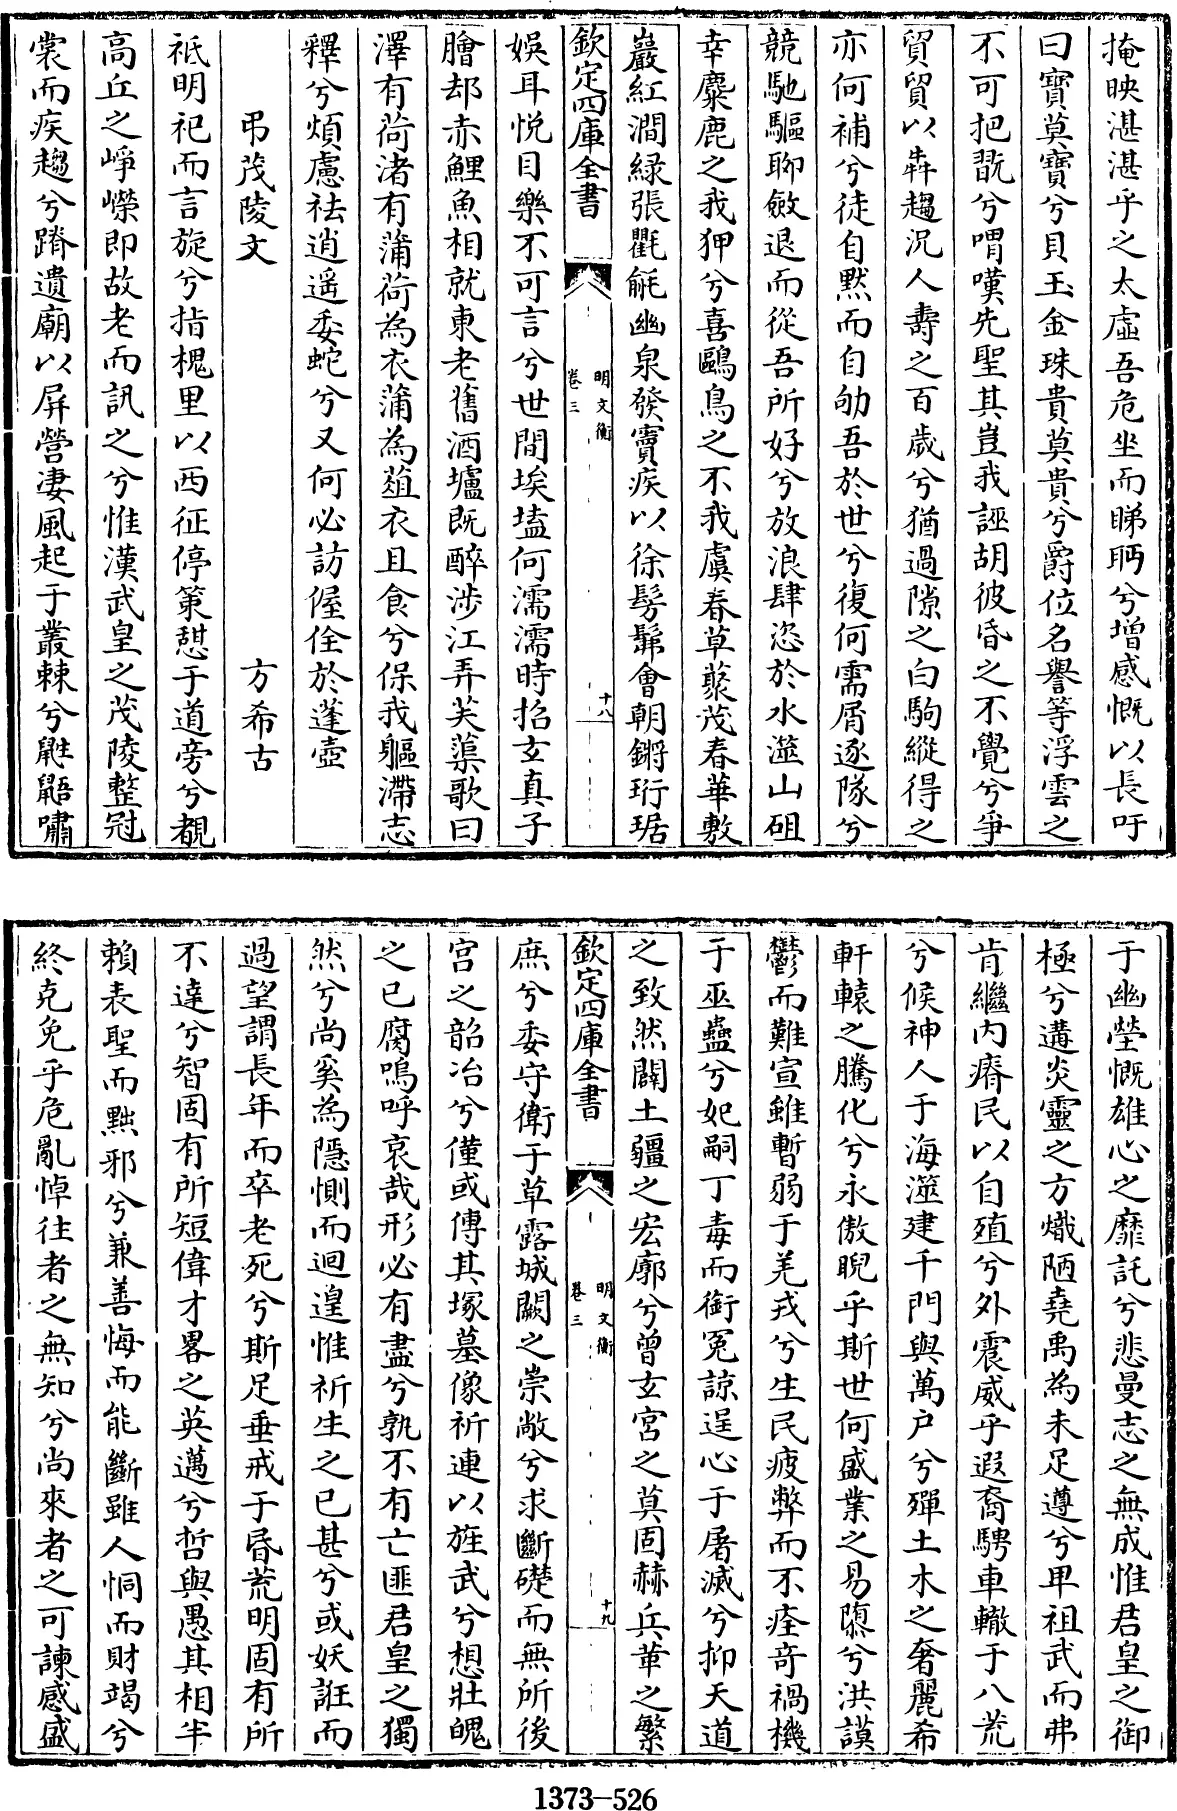 掩映湛湛乎之太虛吾危坐而睇眄兮增感慨以長吁
曰寶莫寶兮貝玉金珠貴莫貴兮爵位名譽等浮雲之
不可把翫兮喟嘆先聖其豈我誣胡彼昏之不覺兮爭
貿貿以犇趨況人壽之百歲兮猶過隙之白駒縱得之
亦何補兮徒自黙而自劬吾於世兮復何需屑逐隊兮
競馳驅聊斂退而從吾所好兮放浪肆恣於水澨山砠
幸麋鹿之我狎兮喜鷗鳥之不我虞春草藂茂春華敷
巖紅澗綠張氍毹幽泉發竇疾以徐髣髴會朝鏘珩琚
欽定四庫全書
明文衡
卷三
十八
娯耳悅目樂不可言兮世間埃壒何濡濡時招玄真子
膾却赤鯉魚相就東老舊酒壚既醉涉江弄芙蕖歌曰
澤有荷渚有蒲荷為衣蒲為葅衣且食兮保我軀滯志
釋兮煩慮祛逍遥委蛇兮又何必訪偓佺於蓬壺
弔茂陵文
方希古
祗明祀而言旋兮指槐里以西征停策憇于道旁兮覩
高丘之崢嶸即故老而訊之兮惟漢武皇之茂陵整冠
裳而疾趨兮躋遺廟以屏營凄風起于叢棘兮鼪鼯嘯
于幽塋慨雄心之靡託兮悲曼志之無成惟君皇之御
極兮遘炎靈之方熾陋堯禹為未足遵兮卑祖武而弗
肯繼内瘠民以自殖兮外震威乎遐裔騁車轍于八荒
兮候神人于海澨建千門與萬户兮殫土木之奢麗希
軒轅之騰化兮永傲睨乎斯世何盛業之易隳兮洪謨
鬱而難宣雖暫弱于羌戎兮生民疲弊而不痊奇禍機
于巫蠱兮妃嗣丁毒而銜冤諒逞心于屠滅兮抑天道
之致然闢土疆之宏廓兮曾玄宮之莫固赫兵革之繁
欽定四庫全書
明文衡
卷三
十九
庶兮委守衛于草露城闕之崇敞兮求斷礎而無所後
宮之韶冶兮僅或傳其塚墓像祈連以旌武兮想壯魄
之已腐嗚呼哀哉形必有盡兮孰不有亡匪君皇之獨
然兮尚奚為隱惻而迴遑惟祈生之已甚兮或妖誑而
過望謂長年而卒老死兮斯足垂戒于昏荒明固有所
不達兮智固有所短偉才畧之英邁兮哲與愚其相半
賴表聖而黜邪兮兼善悔而能斷雖人恫而財竭兮
終克免乎危亂悼往者之無知兮尚來者之可諫感盛
1373-526